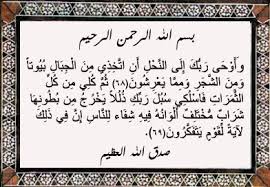 بسم الله الرحمن الرحيم
وَأَوْحَى رَبُّكَ إِلَى النَّحْلِ أَنِ اتَّخِذِي مِنَ الْجِبَالِ بُيُوتاً
وَمِنَ الشَّجَرِ وَمِمَّا يَعْرِشُونَ (٦٨) ثُمَّ كُلِي مِن كُلِّ
الثَّمَرَاتِ فَاسْلُكِي سُبُلَ رَبِّكِ ذُلُلاً يَخْرُجُ مِن بُطُونِهَا
شَرَابٌ مُّخْتَلِفٌ أَلْوَانُهُ فِيهِ شِفَاء لِلنَّاسِ إِنَّ فِي ذَلِكَ
لَآيَةً لِّقَوْمٍ يَتَفَكَّرُونَ (٦٩)
صدق الله العظيم